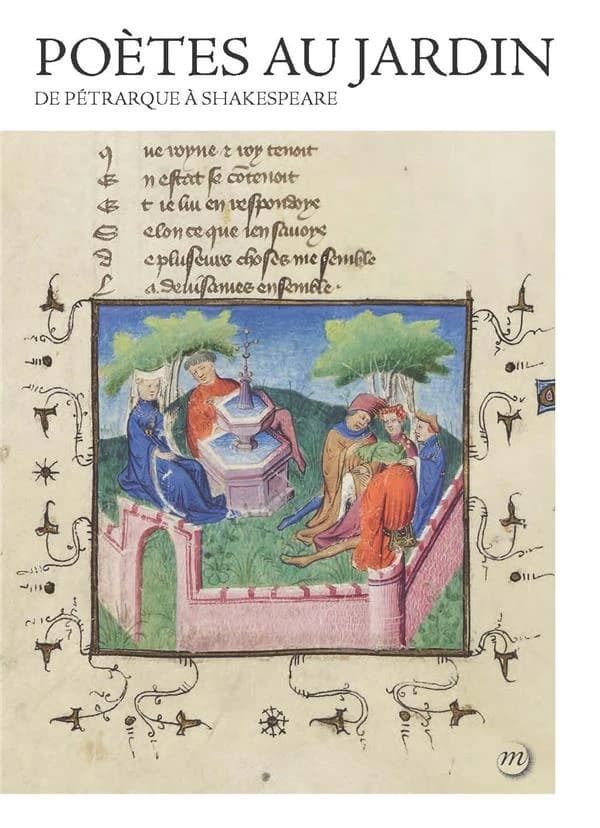 POÈTES AU JARDIN
DE PÉTRARQUE À SHAKESPEARE
q ue royne ⁊ roy tenoit
E n estat se cōtenoit
E t ie lui en respondoye
S elon ce que ien sauoye
d e pluseurs choses me semble
L a deuisames ensemble.
m